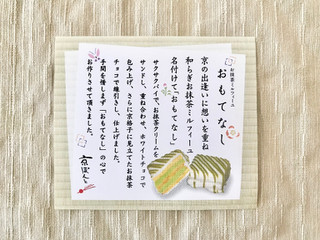 お抹茶ミルフィーユ
おもてなし
京の出逢いに想いを重ね
和らぎお抹茶ミルフィーユ
名付けて「おもてなし」
サクサクパイで、お抹茶クリームを
サンドし、重ね合わせ、ホワイトチョコで
包み上げ、さらに京格子に見立てたお抹茶
チョコで線引きし、仕上げました。
手間を惜しまず「おもてなし」の心で
お作りさせて頂きました。
京ぽんと